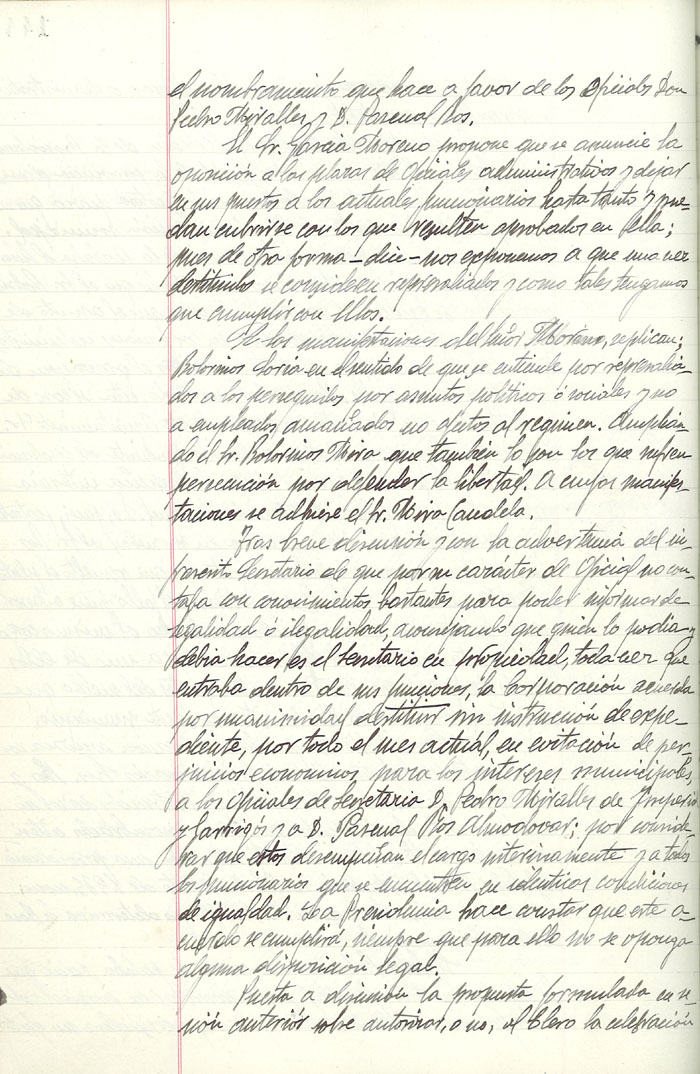 el nombramiento que hace a favor de los Oficiales Don
Pedro Miralles y D. Pascual Ros.
El Sr. García Moreno propone que se anuncie la
oposición a las plazas de Oficiales administrativos y dejar
en sus puestos a los actuales funcionarios hasta tanto y pue-
dan cubrirse con los que resulten aprobados en ella;
pues de otra forma - dice - nos exponemos a que una vez
destituidos se consideren represaliados y como tales tengamos
que cumplir con ellos.
A las manifestaciones del señor Moreno, replican;
Bolorinos Soria en el sentido de que se entiende por represalia-
dos a los perseguidos por asuntos políticos ó sociales y no
a empleados amañados no afectos al regimen. Amplian-
do el Sr. Bolorinos Mira que también lo son los que sufren
persecución por defender la libertad. A cuyas manifes-
taciones se adhiere el Sr. Mira Candela.
Tras breve discusión y con la advertencia del in-
frascrito Secretario de que por su carácter de Oficial no con-
taba con conocimientos bastantes para poder informar de
legalidad ó ilegalidad, aconsejando que quien lo podia y
debia hacer es el Secretario en propiedad, toda vez que
entraba dentro de sus funciones, la Corporación acuerda
por unanimidad destituir sin instrucción de expe-
diente, por todo el mes actual, en evitación de per-
juicios economicos para los intereses municipales
a los Oficiales de Secretaria D. Pedro Miralles de Imperial
y Garrigós y a D. Pascual Ros Almodovar; por conside-
rar que estos desempeñan el cargo interinamente y a todos
los funcionarios que se encuentren en identicas condiciones
de igualdad. La Presidencia hace constar que este a-
cuerdo se cumplirá, siempre que para ello no se oponga
alguna disposición legal.
Puesta a discusión la propuesta formulada en se-
sión anterior sobre autorizar, o no, al Clero la celebración